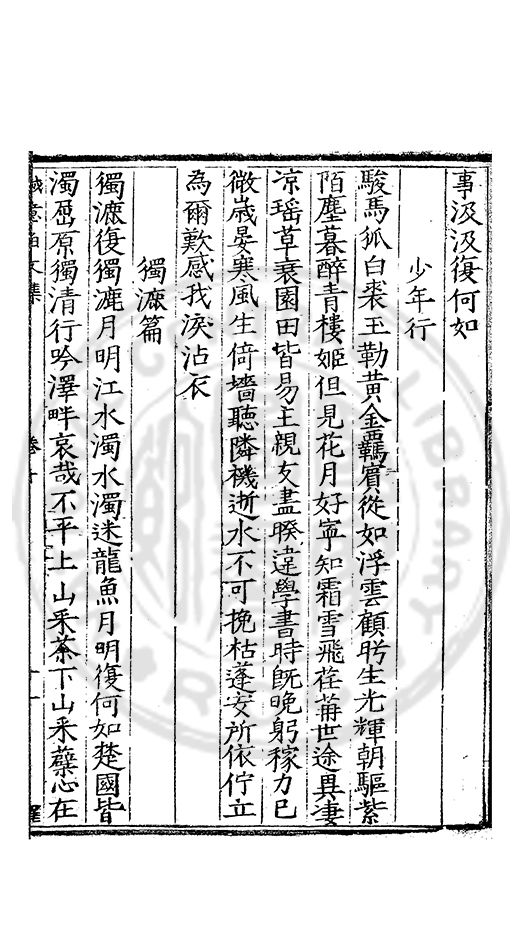 事汲汲復何如
少年行
駿馬狐白裘玉勒黃金羈賓從如浮雲顧眄生光輝朝驅紫
陌塵暮醉青樓姬但見花月好寧知霜雪飛荏苒世途異淒
凉瑶草衰園田皆易主親友盡暌違學書時旣晚躬稼力已
微嵗晏寒風生倚墻聽隣機逝水不可挽枯蓬安所依佇立
為爾歎感我淚沾衣
獨漉篇
獨漉復獨漉月明江水濁水濁迷龍魚月明復何如楚國皆
濁屈原獨清行吟澤畔哀哉不平上山采荼下山采蘗心在